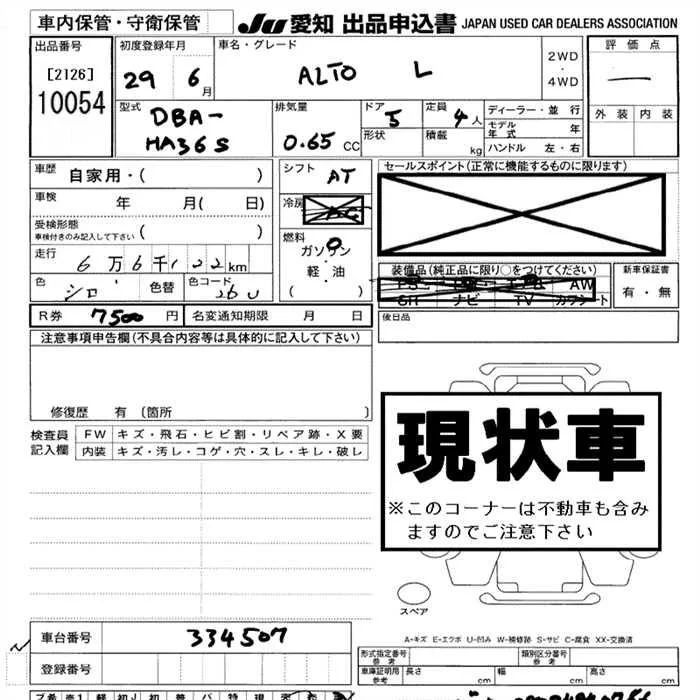 車内保管・守衛保管 JU 愛知 出品申込書 JAPAN USED CAR DEALERS ASSOCIATION
出品番号 初度登録年月 車名・グレード 評価点
[2126] 29 6月 ALTO L 2WD・4WD —
10054 型式 排気量 ドア 定員 ディーラー・並行 外装 内装
DBA- 5 4人 モデル年式 年
HA36S 0.65cc 形状 積載 kg ハンドル 左・右
車歴 自家用・( ) シフト AT セールスポイント(正常に機能するものに限ります)
車検 年 月( 日) 冷房
受検形態
車検付きのみ記入して下さい ( ) 燃料
走行 6万6千122km ガソリン・軽・油 装備品(純正品に限り○をつけてください) 新車保証書
色 シロ 色替 色コード 26U ( ) AW 有・無
SH ナビ TV カワシート
R券 7500円 名変通知期限 月 日 後日品
注意事項申告欄(不具合内容等は具体的に記入して下さい)
修復歴 有 (箇所 )
検査員記入欄 FW キズ・飛石・ヒビ割・リペア跡・X要
内装 キズ・汚レ・コゲ・穴・スレ・キレ・破レ
現状車
※このコーナーは不動車も含み
ますのでご注意下さい
スペア
A-キズ E-エクボ U-凹み W-補修跡 S-サビ C-腐食 XX-交換済
車台番号 334507
登録番号
形式指定番号 参考 類別区分番号 参考
車庫証明用 参考 長さ cm 幅 cm 高さ cm